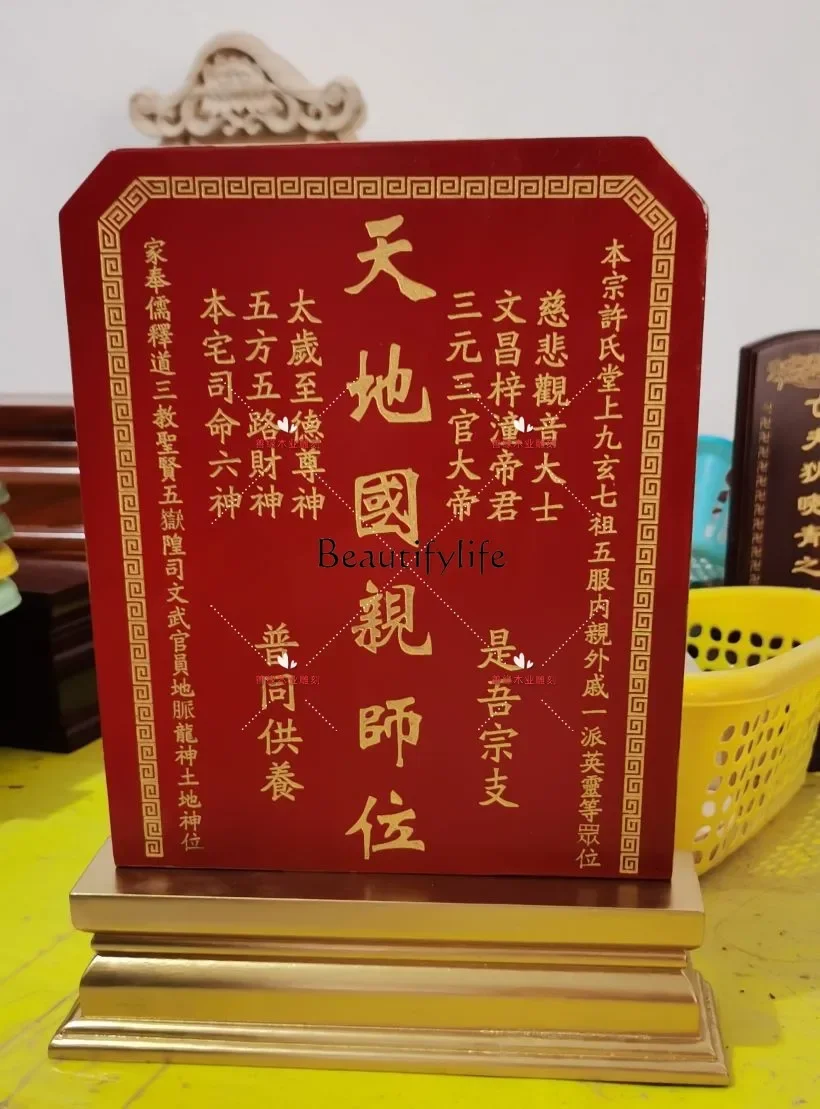 本宗許氏堂上九玄七祖五服内親外戚一派英靈等眾位
慈悲觀音大士
文昌梓潼帝君
三元三官大帝
是吾宗支
天地國親師位
太歲至德尊神
五方五路財神
本宅司命六神
普同供養
家奉儒釋道三教聖賢五嶽隍司文武官員地脈龍神土地神位
Beautifylife